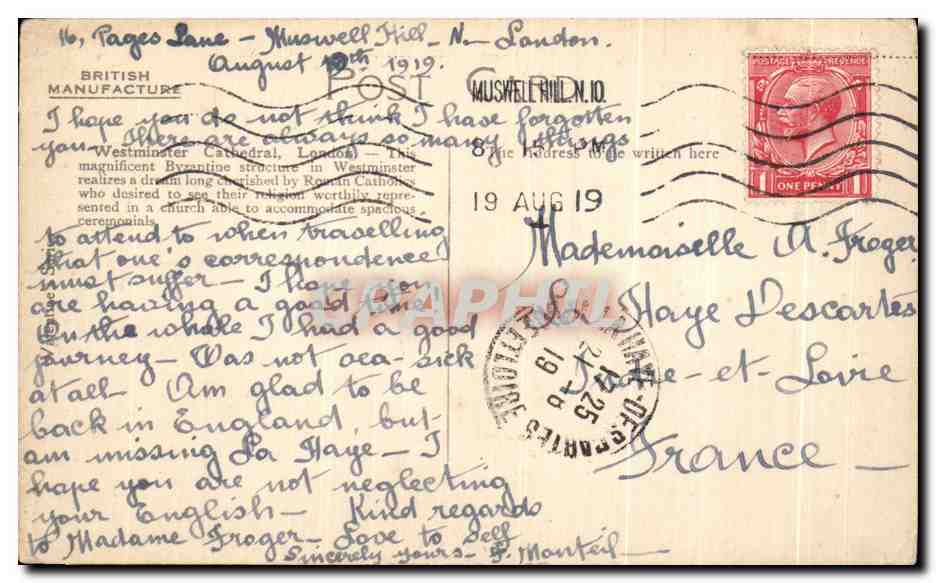 16, Pages Lane – Muswell Hill – N – London.
August 19th 1919.
POST CARD
BRITISH
MANUFACTURE
MUSWELL HILL. N.10.
8 15 PM
19 AUG 19
POSTAGE REVENUE
1 ONE PENNY 1
The Address to be written here
I hope you do not think I have forgotten
you – there are always so many things
Westminster Cathedral, London. — This
magnificent Byzantine structure in Westminster
realizes a dream long cherished by Roman Catholics
who desired to see their religion worthily repre-
sented in a church able to accommodate spacious
ceremonials.
to attend to when travelling
that one's correspondence
must suffer – I hope you
are having a good time!
On the whole I had a good
journey – Was not sea-sick
at all – Am glad to be
back in England, but
am missing La Haye – I
hope you are not neglecting
your English – Kind regards
to Madame Froger – Love to self
Sincerely yours – F. Monteil
Mademoiselle A. Froger
La Haye Descartes
Indre-et-Loire
France
LA HAYE-DESCARTES
17 25
24 - 8
19
CPAPHIL